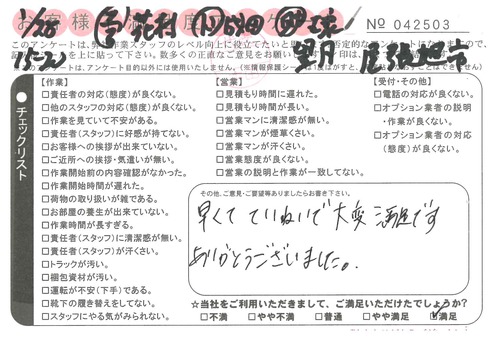 1/28
№ 042503
このアンケートは、弊
11:20
チェックリスト
【作業】
□責任者の対応(態度)が良くない。
□他のスタッフの対応(態度)が良くない。
□作業を見ていて不安がある。
□責任者(スタッフ)に好感が持てない。
□お客様への挨拶が出来ていない。
□ご近所への挨拶・気遣いが無い。
□作業開始前の内容確認がなかった。
□作業開始時間が遅れた。
□荷物の取り扱いが雑である。
□お部屋の養生が出来ていない。
□作業時間が長すぎる。
□責任者(スタッフ)に清潔感が無い。
□責任者(スタッフ)が汗くさい。
□トラックが汚い。
□梱包資材が汚い。
□運転が不安(下手)である。
□靴下の履き替えをしてない。
□スタッフにやる気がみられない。
【営業】
□見積もり時間に遅れた。
□見積もり時間が長い。
□営業マンに清潔感が無い。
□営業マンが煙草くさい。
□営業マンが汗くさい。
□営業態度が良くない。
□営業の説明と作業が一致してない。
【受付・その他】
□電話の対応が良くない。
□オプション業者の説明
・作業が良くない。
□オプション業者の対応
(態度)が良くない。
その他、ご意見・ご要望等ありましたらお書き下さい。
早くて ていねいで 大変 満足です
ありがとうございました。
☆当社をご利用いただきまして、ご満足いただけたでしょうか?
□不満 □やや不満 □普通 □やや満足 ☑満足